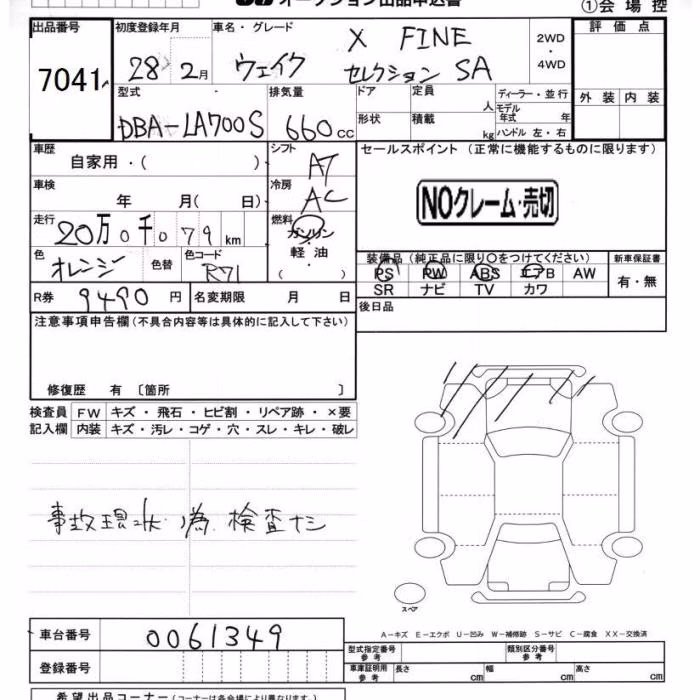 オークション出品申込書
①会場控
出品番号 初度登録年月 車名・グレード 評価点
7041 28 2月 ウェイク X FINE セレクション SA 2WD・4WD
型式 排気量 ドア 定員 人 ディーラー・並行 外装 内装
DBA-LA700S 660cc 形状 積載 kg モデル年式 年 ハンドル 左・右
車歴 シフト セールスポイント (正常に機能するものに限ります)
自家用・( ) AT
車検 冷房
年 月( 日) AC NOクレーム・売切
走行 燃料
20万0千079km ガソリン・軽油 ( )
色 色替 色コード 装備品(純正品に限り〇をつけてください) 新車保証書
オレンジ R71 PS PW ABS エアB AW 有・無
SR ナビ TV カワ
R券 9490円 名変期限 月 日 後日品
注意事項申告欄(不具合内容等は具体的に記入して下さい)
修復歴 有 〔箇所 〕
検査員 FW キズ・飛石・ヒビ割・リペア跡・×要
記入欄 内装 キズ・汚レ・コゲ・穴・スレ・キレ・破レ
事故現状 為 検査ナシ
スペア
A-キズ E-エクボ U-凹み W-補修跡 S-サビ C-腐食 XX-交換済
車台番号 0061349
型式指定番号 参考 類別区分番号 参考
登録番号 車庫証明用 参考 長さ cm 幅 cm 高さ cm
希望出品コーナー(コーナーは各会場により異なります。)